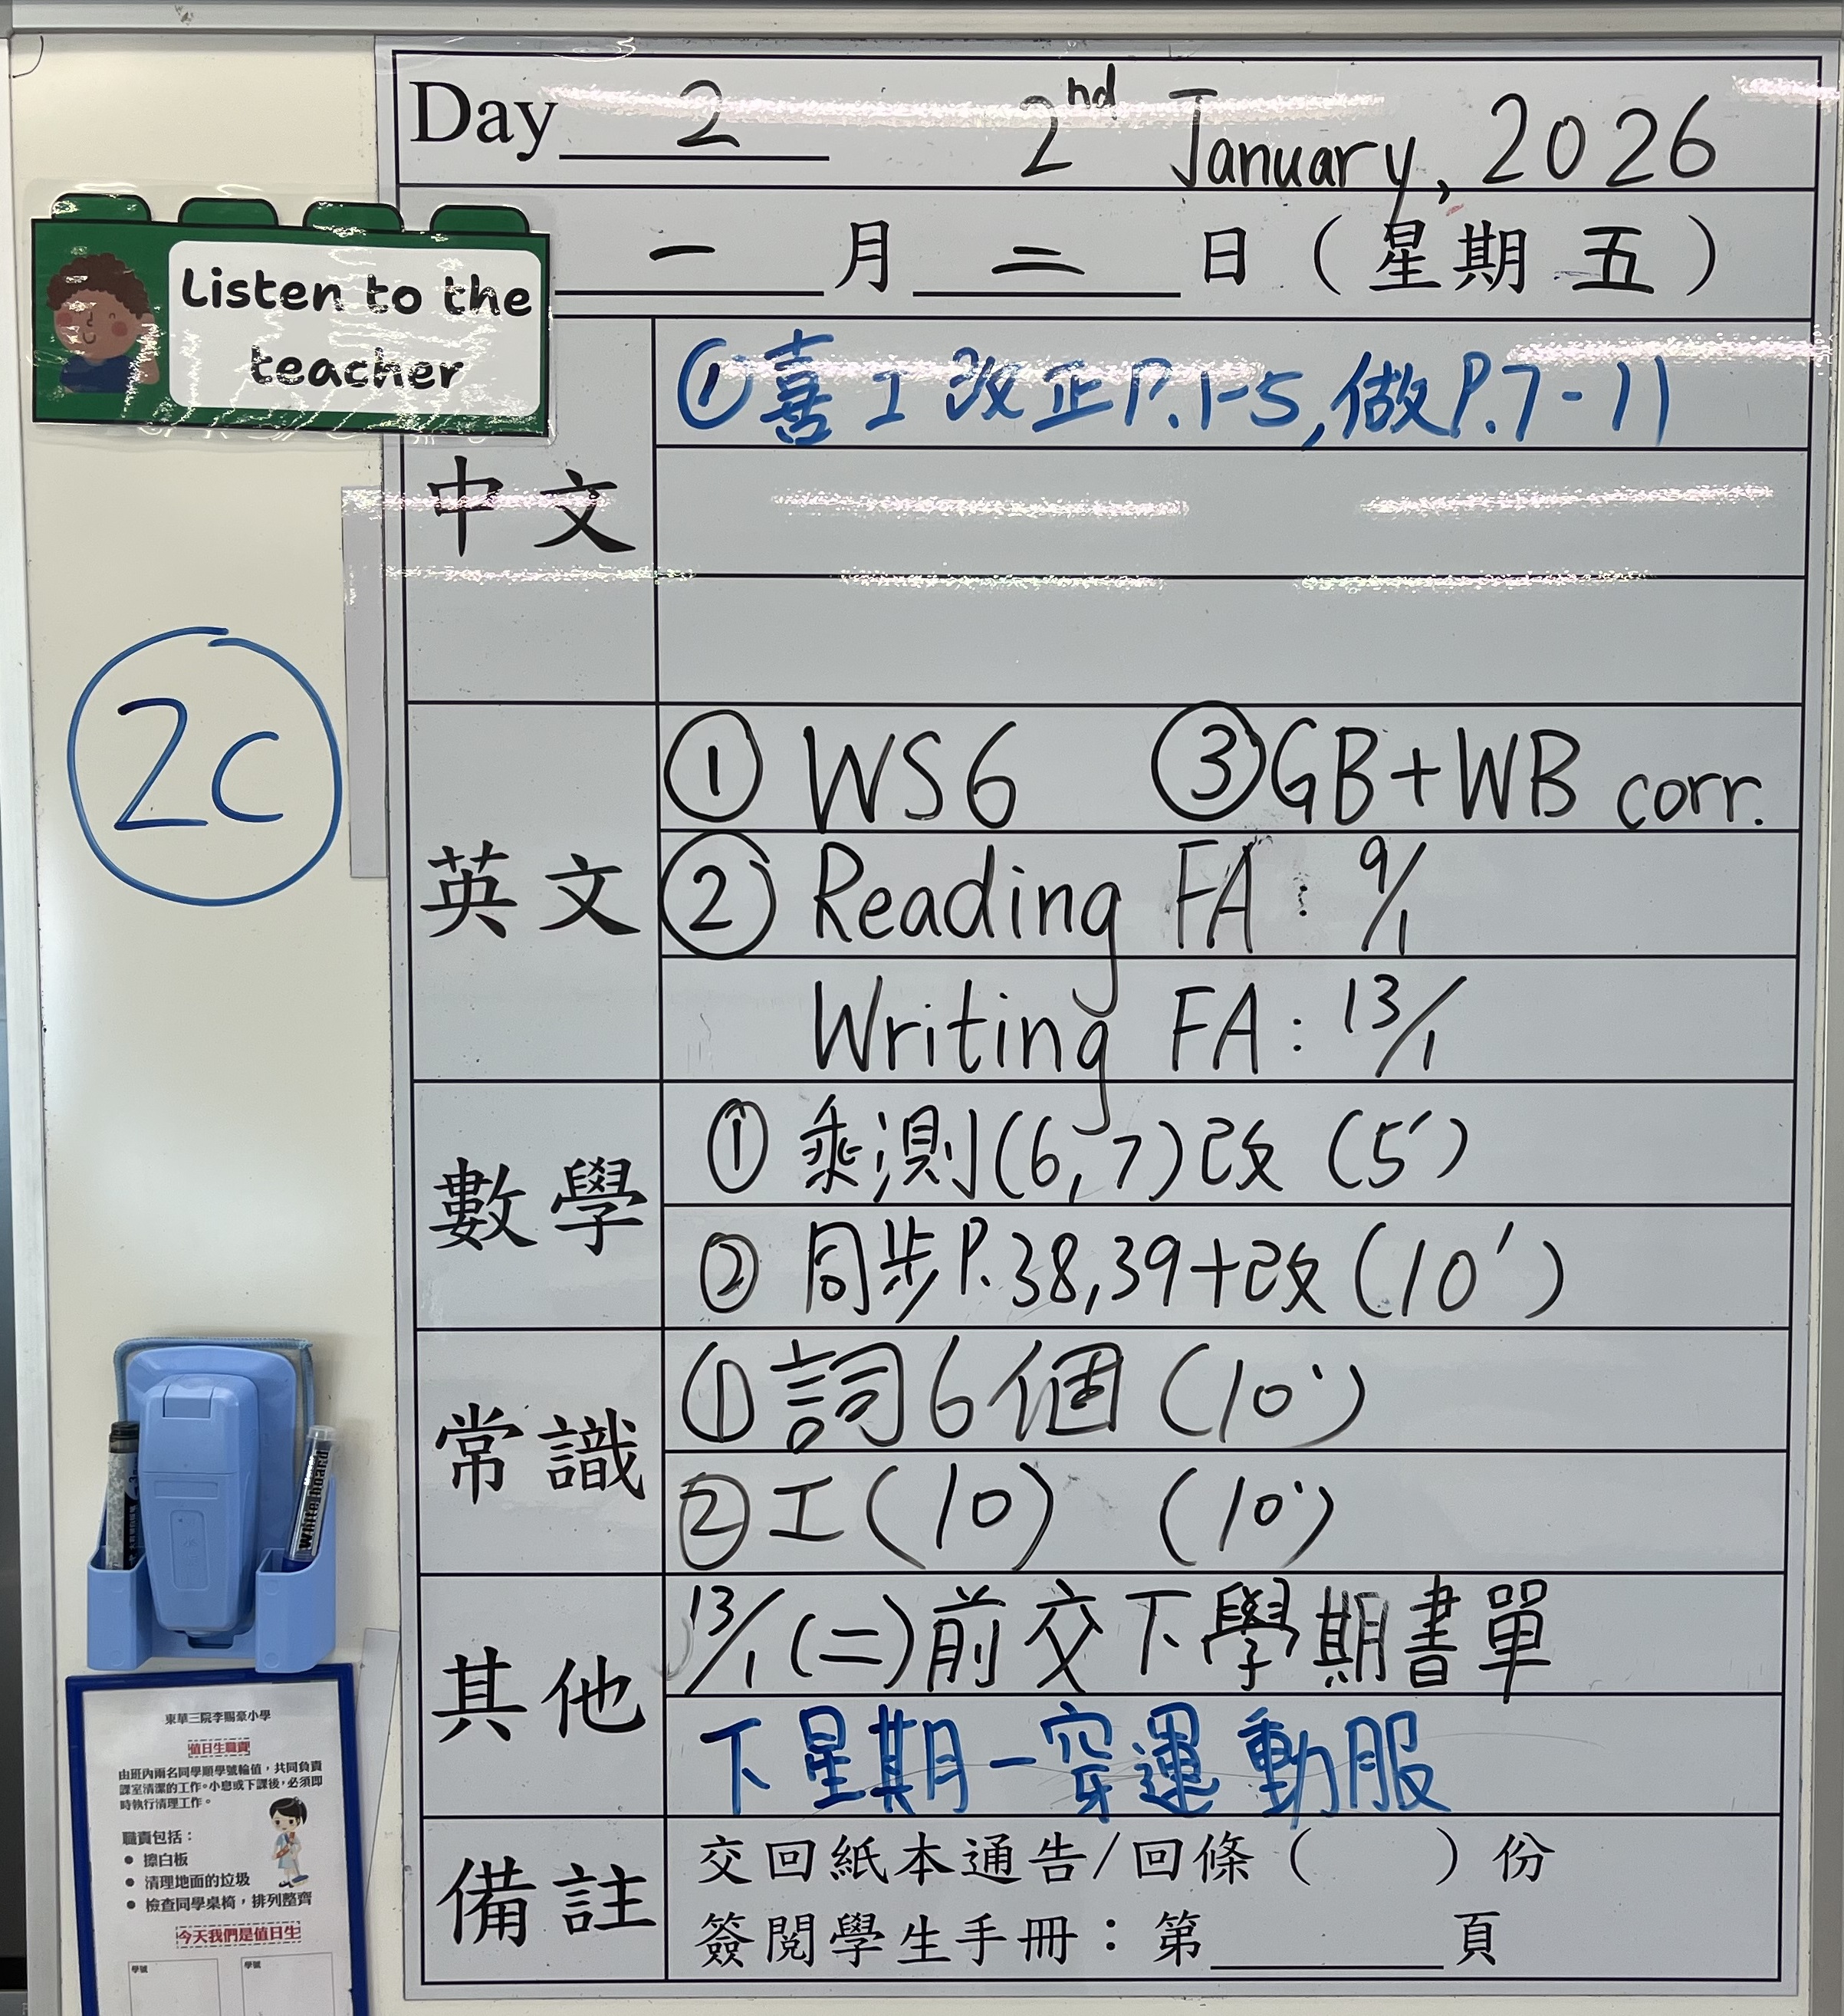 Day 2 2nd January, 2026
一 月 二 日 ( 星 期 五 )
Listen to the
teacher
中文
① 喜工改正P.1-5,做P.7-11
2C
英文
① WS6 ③ GB+WB corr.
② Reading FA: 9/1
Writing FA: 13/1
數學
① 乘測(6,7)改 (5')
② 同步P.38,39+改 (10')
常識
① 詞6個 (10')
② 工(10) (10')
其他
13/1(二)前交下學期書單
下星期一穿運動服
備註
交回紙本通告/回條 ( ) 份
簽閱學生手冊：第 頁
Whiteboard
東華三院李賜豪小學
值日生職責
由班內兩名同學順學號輪值，共同負責
課室清潔的工作。小息或下課後，必須即
時執行清理工作。
職責包括：
• 擦白板
• 清理地面的垃圾
• 檢查同學桌椅，排列整齊
今天我們是值日生
學號 學號